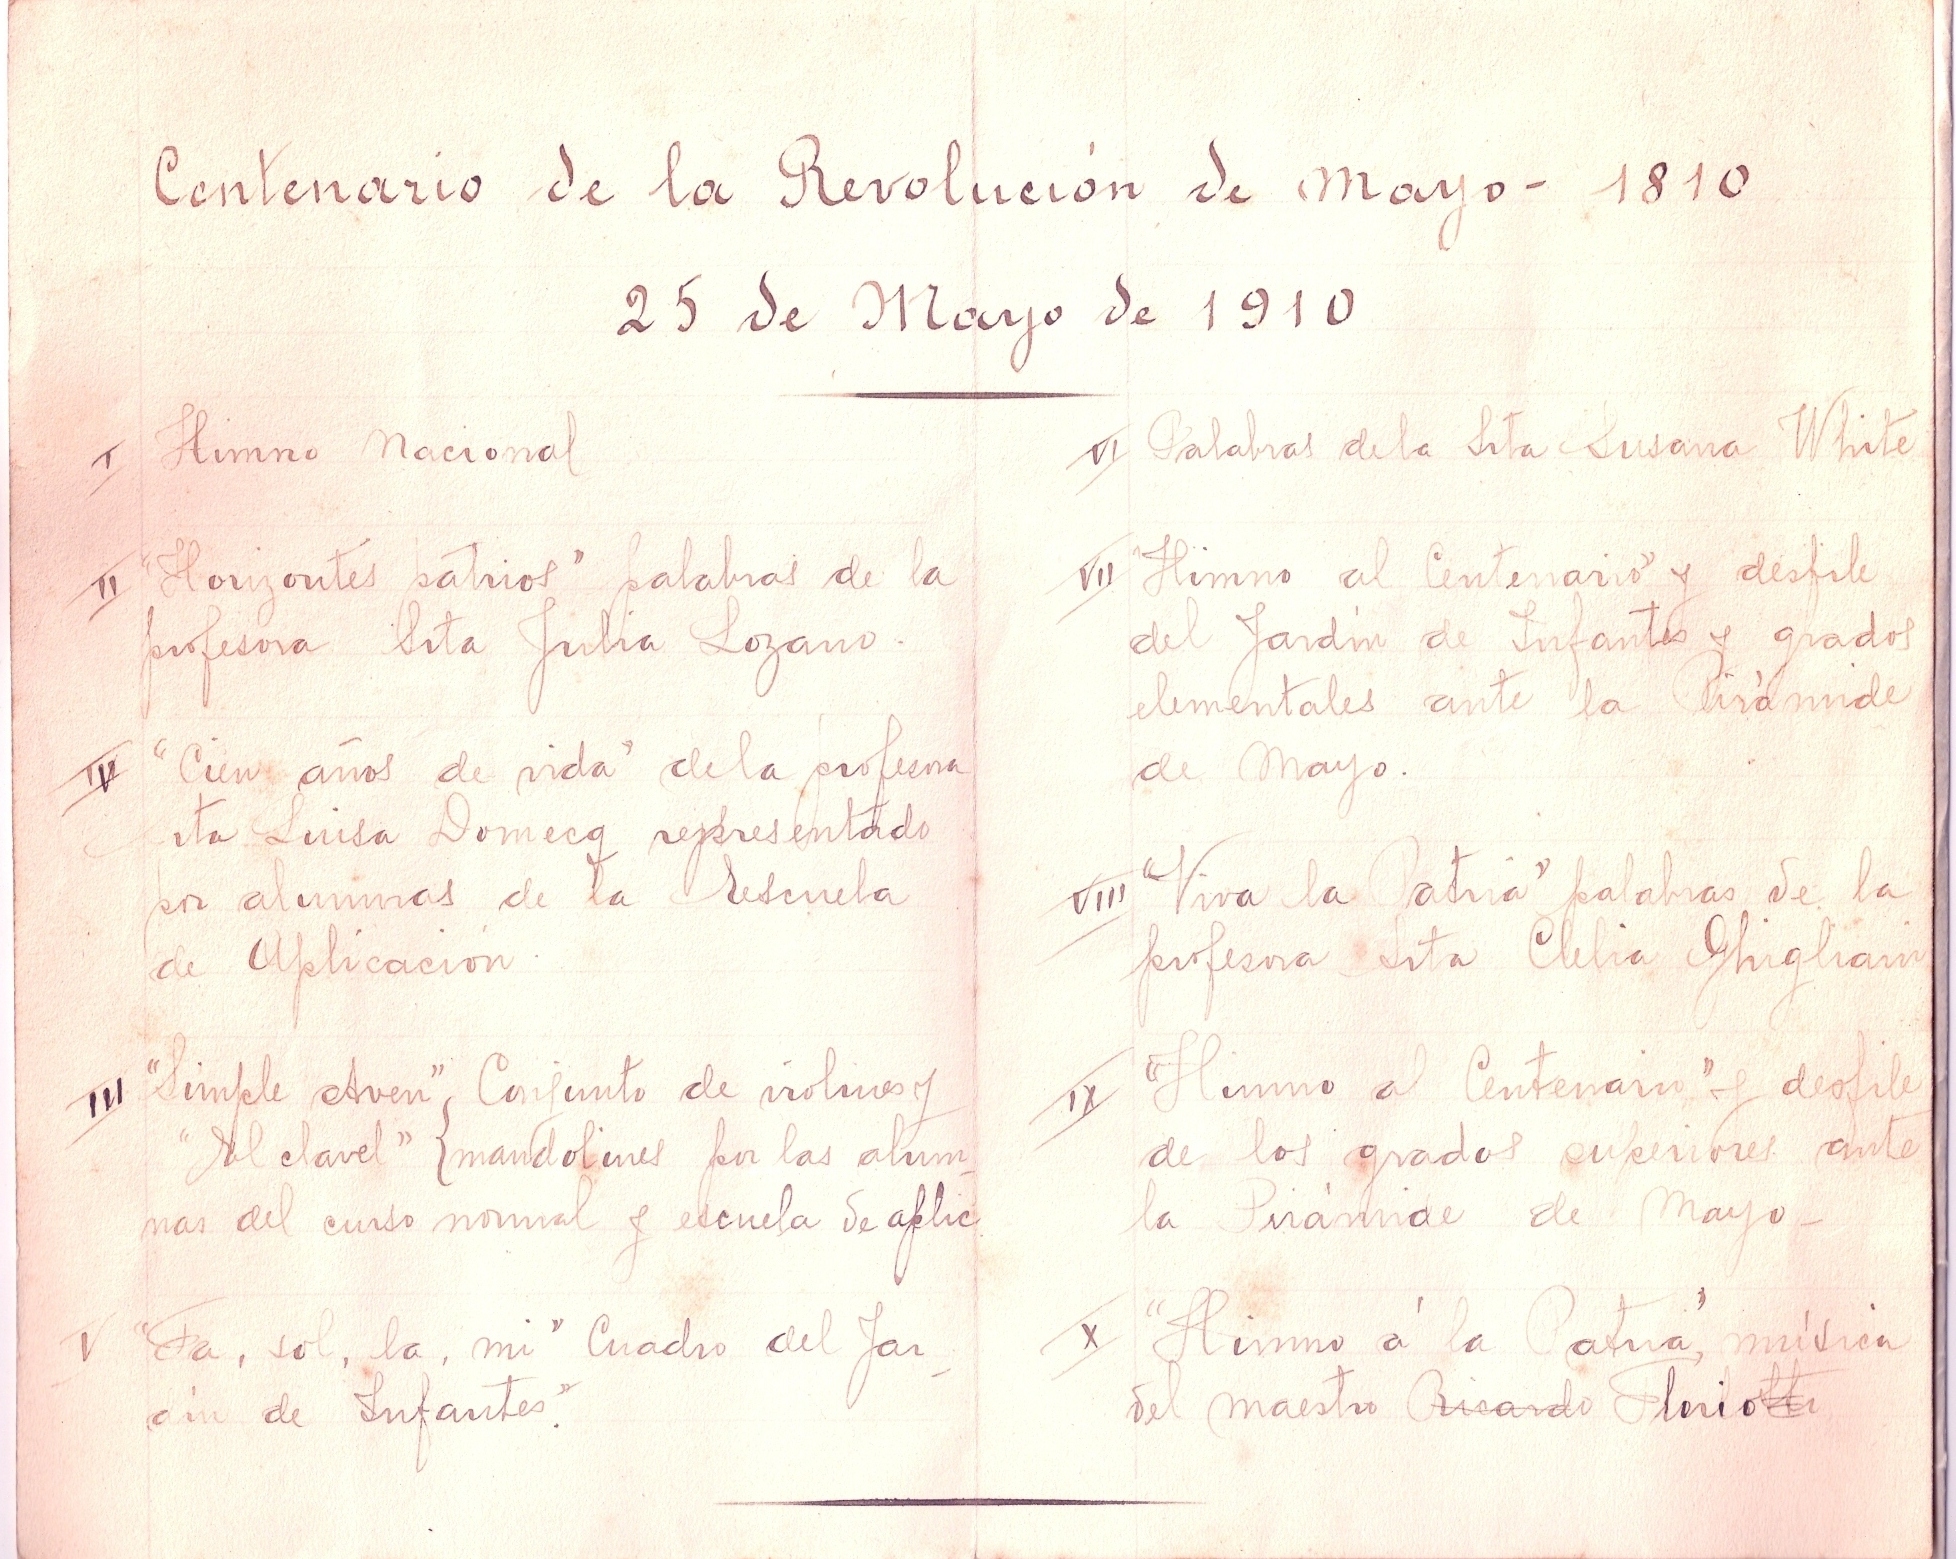 Centenario de la Revolución de Mayo - 1810
25 de Mayo de 1910
I Himno Nacional
II "Horizontes patrios" palabras de la
profesora Srta Julia Lozano.
IV "Cien años de vida" de la profesora
srta Luisa Domecq representado
por alumnas de la Escuela
de Aplicación.
III "Simple Aven", Conjunto de violines y
"El clavel" { mandolines por las alum-
nas del curso normal y escuela de aplic
V "Fa, sol, la, mi" Cuadro del Jar-
dín de Infantes".
VI Palabras de la Srta Susana White
VII "Himno al Centenario" y desfile
del Jardín de Infantes y grados
elementales ante la Pirámide
de Mayo.
VIII "Viva la Patria" palabras de la
profesora Srta Clelia
IX "Himno al Centenario" y desfile
de los grados superiores ante
la Pirámide de Mayo -
X "Himno á la Patria", música
del maestro Ricardo